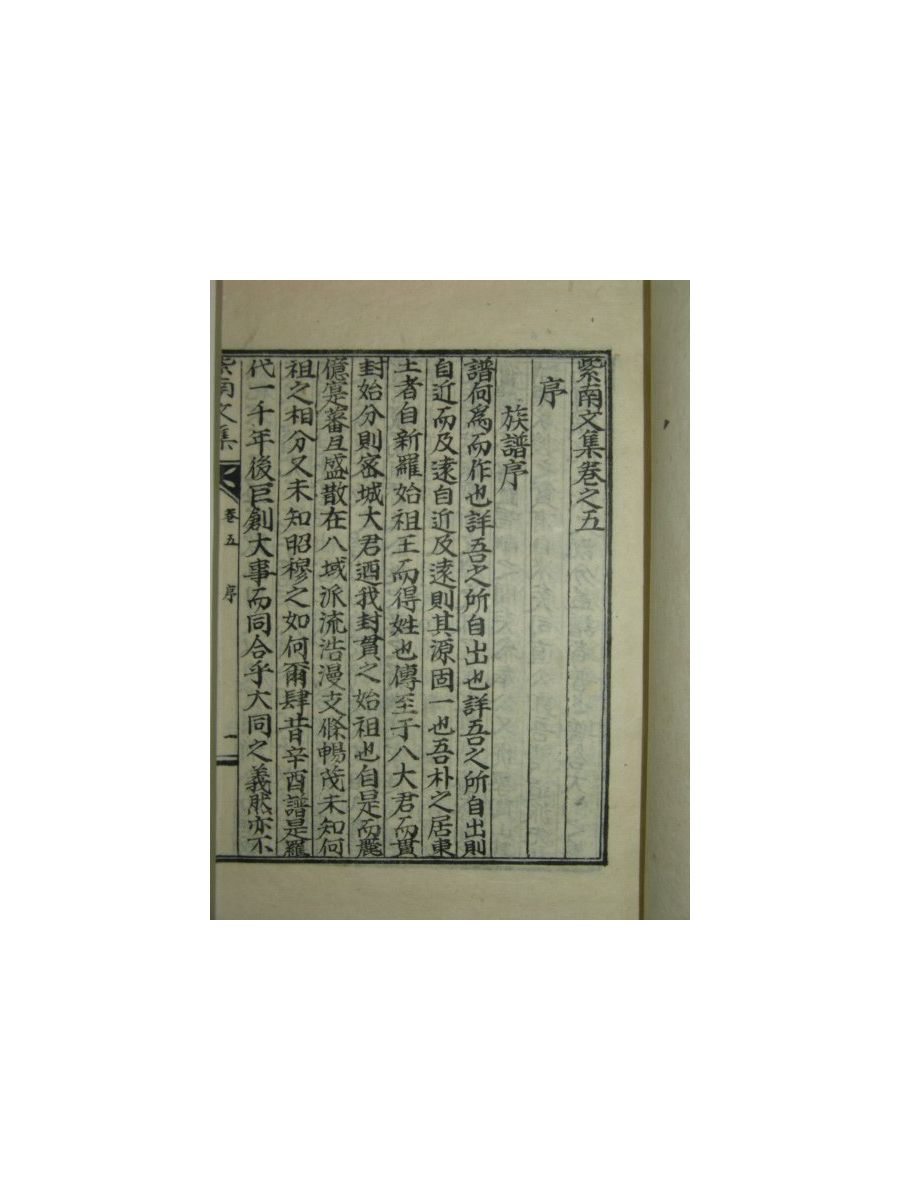 紫南文集卷之五
序
族譜序
譜何爲而作也詳吾之所自出也詳吾之所自出則
自近而及遠自近及遠則其源固一也吾朴之居東
土者自新羅始祖王而得姓也傳至于八大君而貫
封始分則密城大君迺我封貫之始祖也自是而麗
億寔蕃且盛散在八域派流浩漫支條暢茂未知何
祖之相分又未知昭穆之如何爾肆昔辛酉譜是羅
代一千年後巨創大事而同合乎大同之義然亦不
紫南文集 卷五 序 一